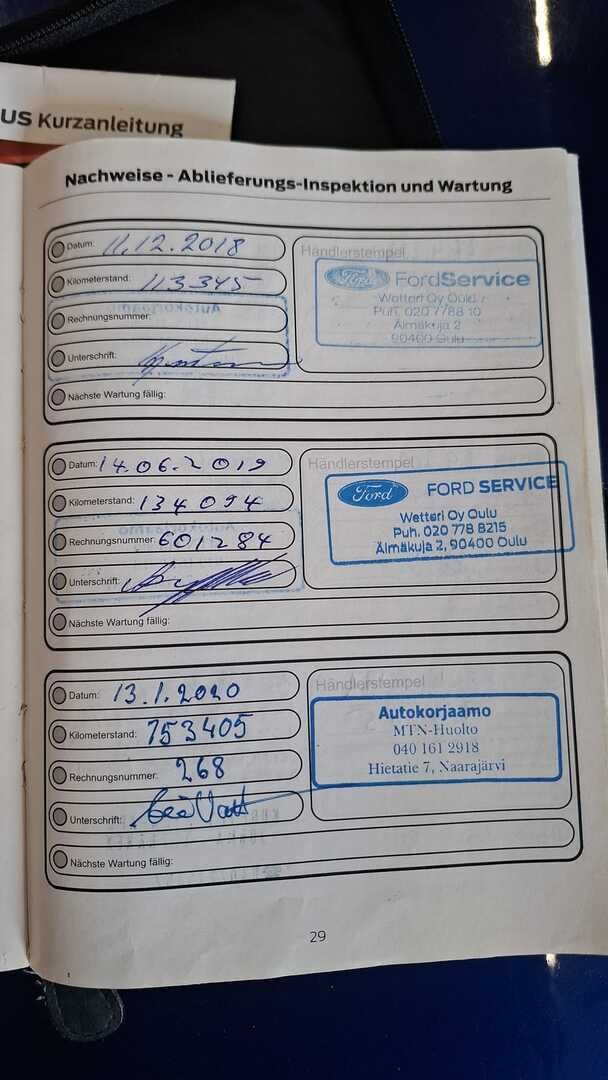 US Kurzanleitung
Nachweise - Ablieferungs-Inspektion und Wartung
Datum: 11.12.2018
Kilometerstand: 113345
Rechnungsnummer:
Unterschrift:
Nächste Wartung fällig:
Händlerstempel
Ford FordService
Wetteri Oy Oulu
Puh. 020 7788 10
Älmäkuja 2
90400 Oulu
Datum: 14.06.2019
Kilometerstand: 134094
Rechnungsnummer: 601284
Unterschrift:
Nächste Wartung fällig:
Händlerstempel
Ford FORD SERVICE
Wetteri Oy Oulu
Puh. 020 778 8215
Älmäkuja 2, 90400 Oulu
Datum: 13.1.2020
Kilometerstand: 153405
Rechnungsnummer: 268
Unterschrift:
Nächste Wartung fällig:
Händlerstempel
Autokorjaamo
MTN-Huolto
040 161 2918
Hietatie 7, Naarajärvi
29